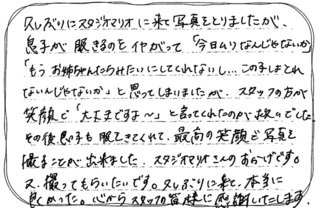 久しぶりにスタジオマリオに来て写真をとりましたが、
息子が服をきるのをイヤがって「今日ムリなんじゃないか」
「もうお姉ちゃんたちみたいにしてくれないし…この子しまとれ
ないんじゃないか」と思ってしまいましたが、スタッフの方が
笑顔で「大丈夫ですよ〜」と言ってくれたのが救いでした
その後息子も服をきてくれて、最高の笑顔で写真を
撮ることが出来ました。スタジオマリオさんのおかげです。
又、撮ってもらいたいです。久しぶりに来て、本当に
良かった。心からスタッフの皆様に感謝いたします。